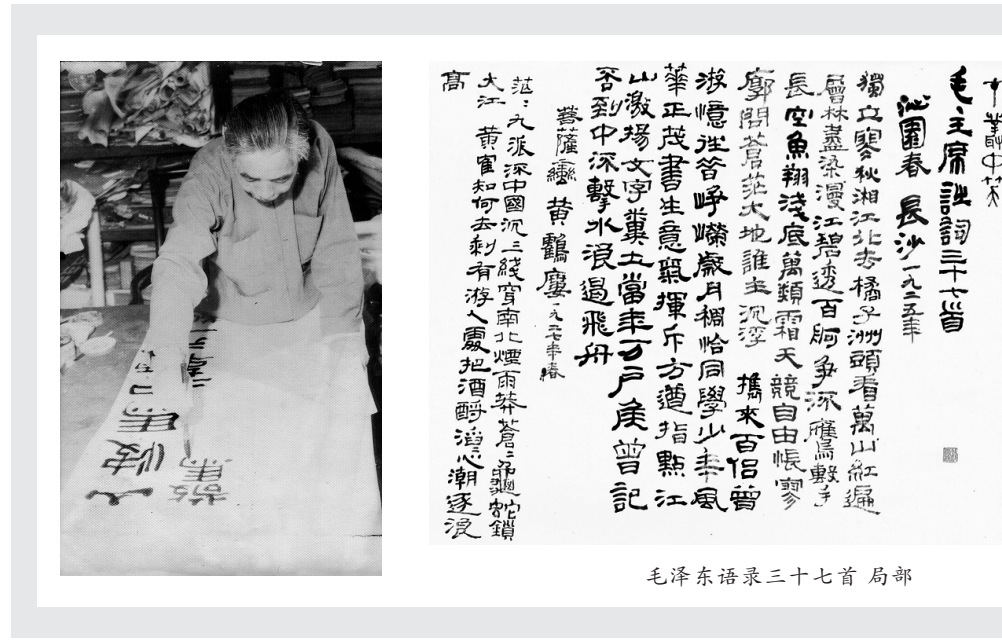 叢中笑
毛主席詩詞三十七首
沁園春 長沙 一九二五年
獨立寥秋湘江北去橘子洲頭看萬山紅遍
層林盡染漫江碧透百舸争流鷹擊
長空魚翔淺底萬類霜天競自由悵寥
廓問蒼茫大地誰主沉浮 攜來百侣曾
游憶往昔峥嶸歲月稠恰同學少年風
華正茂書生意氣揮斥方遒指點江
山激揚文字糞土當年万户侯曾記
否到中流擊水浪遏飛舟
菩薩蠻 黄鶴樓 一九二七年春
茫〻九派流中國沉〻一綫穿南北煙雨莽蒼〻龜蛇鎖
大江 黄隺知何去剩有游人處把酒酹滔〻心潮逐浪
高
毛泽东语录三十七首 局部